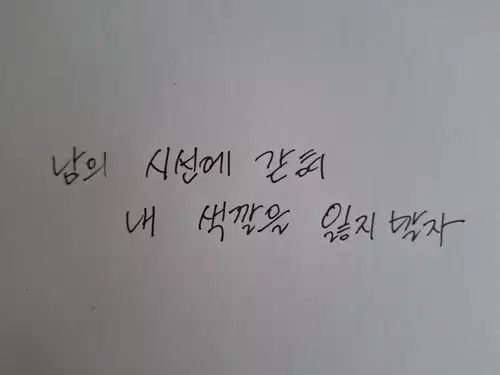 남의 시선에 갇혀
내 색깔을 잃지 말자